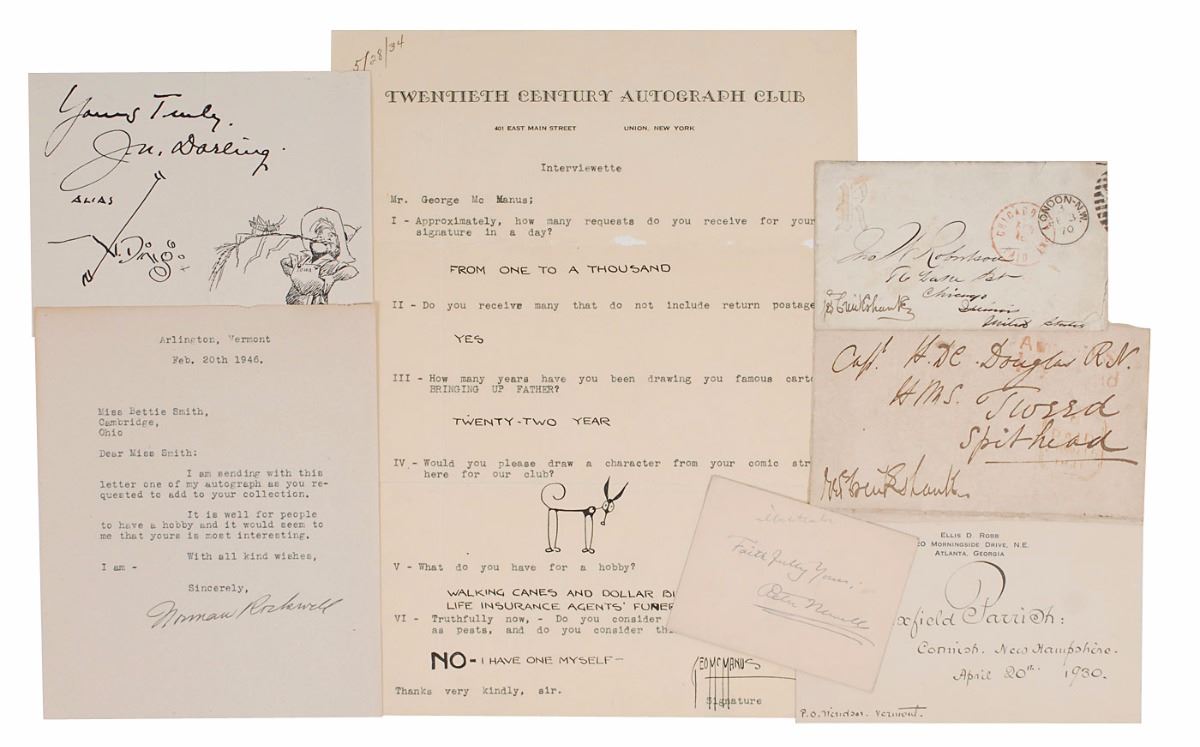 Yours Truly,
J.N. Darling.
ALIAS
Arlington, Vermont
Feb. 20th 1946.
Miss Bettie Smith,
Cambridge,
Ohio
Dear Miss Smith:
I am sending with this
letter one of my autograph as you re-
quested to add to your collection.
It is well for people
to have a hobby and it would seem to
me that yours is most interesting.
With all kind wishes,
I am -
Sincerely,
Norman Rockwell
5/28/34
TWENTIETH CENTURY AUTOGRAPH CLUB
401 EAST MAIN STREET UNION, NEW YORK
Interviewette
Mr. George Mc Manus;
I - Approximately, how many requests do you receive for your
signature in a day?
FROM ONE TO A THOUSAND
II - Do you receive many that do not include return postage
YES
III - How many years have you been drawing you famous carto
BRINGING UP FATHER?
TWENTY-TWO YEAR
IV - Would you please draw a character from your comic str
here for our club?
V - What do you have for a hobby?
WALKING CANES AND DOLLAR BI
LIFE INSURANCE AGENTS' FUNER
VI - Truthfully now, - Do you consider
as pests, and do you consider thi
NO - I HAVE ONE MYSELF -
GEO MCMANUS
Thanks very kindly, sir.
Signature
CHICAGO
LONDON-N.W.
70
Jno W Robertson
Chicago
Illinois
United States
Geo Cruikshank
Capt. H. DC. Douglas R.N.
HMS. Tweed
Spithead
Geo Cruikshank
Faithfully Yours,
Peter Newell
ELLIS D. ROBB
EO MORNINGSIDE DRIVE, N.E.
ATLANTA, GEORGIA
xfield Parrish:
Cornish. New Hampshire.
April 20th 1930.
P.O. Windsor. Vermont.